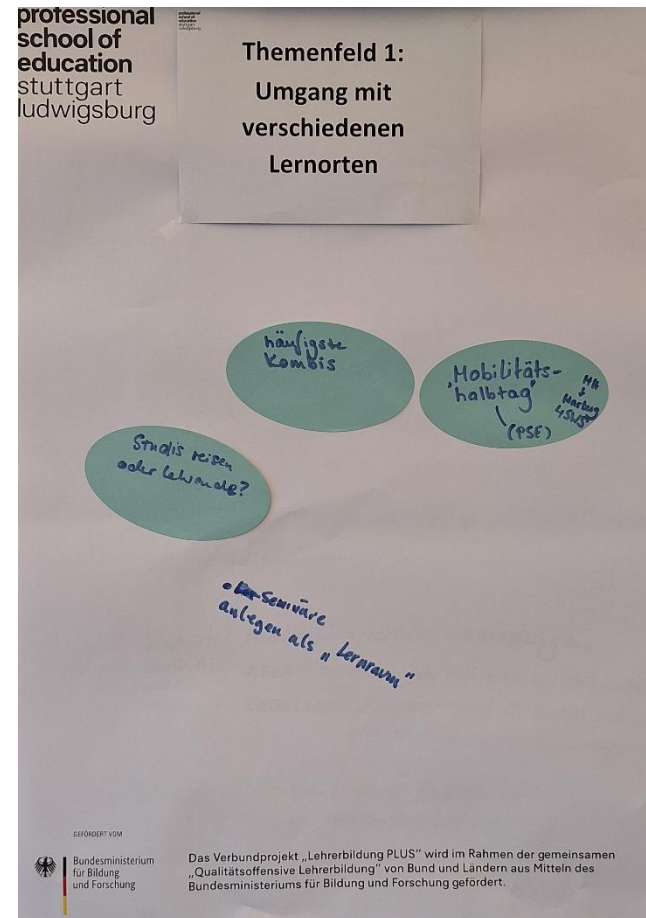 professional
school of
education
stuttgart
ludwigsburg
Themenfeld 1:
Umgang mit
verschiedenen
Lernorten
häufigste
Kombis
Mobilitäts-
'halbtag'
(PSE)
MA
Marburg
4SWS
Studis reisen
oder Lehrende?
• Seminäre
anlegen als „Lernraum"
GEFÖRDERT VOM
Bundesministerium
für Bildung
und Forschung
Das Verbundprojekt „Lehrerbildung PLUS" wird im Rahmen der gemeinsamen
„Qualitätsoffensive Lehrerbildung" von Bund und Ländern aus Mitteln des
Bundesministeriums für Bildung und Forschung gefördert.